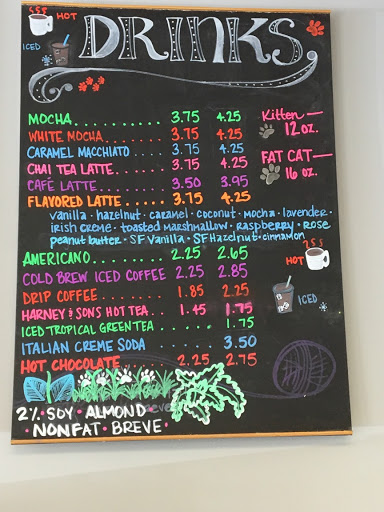 HOT
ICED
DRINKS
MOCHA.......... 3.75 4.25
WHITE MOCHA........ 3.75 4.25
CARAMEL MACCHIATO... 3.75 4.25
CHAI TEA LATTE...... 3.75 4.25
CAFÉ LATTE........ 3.50 3.95
FLAVORED LATTE..... 3.75 4.25
Kitten—
12 oz.
FAT CAT—
16 oz.
vanilla · hazelnut · caramel · coconut · mocha · lavender ·
irish creme · toasted marshmallow · raspberry · rose
peanut butter · SF Vanilla · SF Hazelnut · cinnamon
AMERICANO........ 2.25 2.65
COLD BREW ICED COFFEE 2.25 2.85
DRIP COFFEE....... 1.85 2.25
HARNEY & SONS HOT TEA.. 1.45 1.75
ICED TROPICAL GREEN TEA..... 1.75
ITALIAN CREME SODA ... 3.50
HOT CHOCOLATE... 2.25 2.75
HOT
ICED
2% · SOY · ALMOND
· NONFAT · BREVE ·